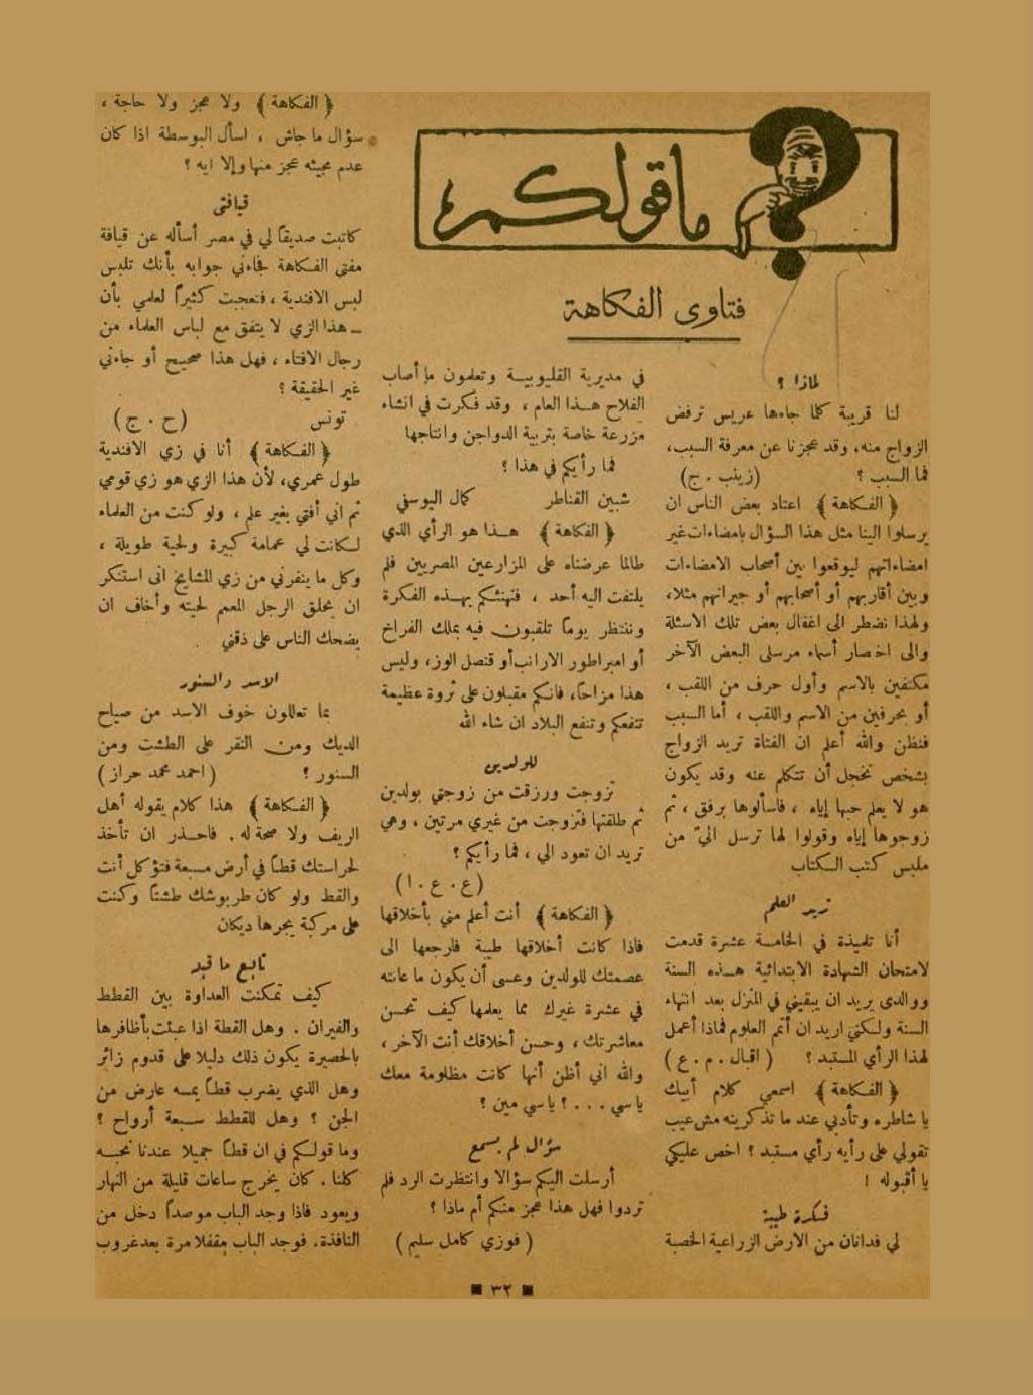 ما قولكم؟
فتاوى الفكاهة
لماذا ؟
لنا قريبة كلما جاءها عريس ترفض
الزواج منه، وقد عجزنا عن معرفة السبب،
فما السبب ؟ (زينب . ج)
﴿ الفكاهة ﴾ اعتاد بعض الناس ان
يرسلوا الينا مثل هذا السؤال بامضاءات غير
امضاءاتهم ليوقعوا بين أصحاب الامضاءات
وبين أقاربهم أو أصحابهم أو جيرانهم مثلا،
ولهذا نضطر الى اغفال بعض تلك الاسئلة
والى اختصار أسماء مرسلي البعض الآخر
مكتفين بالاسم وأول حرف من اللقب ،
أو بحرفين من الاسم واللقب ، أما السبب
فنظن والله أعلم ان الفتاة تريد الزواج
بشخص تخجل أن تتكلم عنه وقد يكون
هو لا يعلم حبها إياه ، فاسألوها برفق ، ثم
زوجوها إياه وقولوا لها ترسل اليّ من
ملبس كتب الكتاب
تريد العلم
أنا تلميذة في الخامسة عشرة قدمت
لامتحان الشهادة الابتدائية هذه السنة
ووالدي يريد ان يبقيني في المنزل بعد انتهاء
السنة ولكني اريد ان أتم العلوم فماذا أعمل
لهذا الرأي المستبد ؟ ( اقبال . م . ع )
﴿ الفكاهة ﴾ اسمعي كلام أبيك
يا شاطره وتأدبي عند ما تذكرينه مش عيب
تقولي على رأيه رأي مستبد ؟ اخص عليكي
يا أقبوله !
فكرة طيبة
لي فدانان من الارض الزراعية الخصبة
في مديرية القليوبية وتعلمون ما أصاب
الفلاح هذا العام ، وقد فكرت في انشاء
مزرعة خاصة بتربية الدواجن وانتاجها
فما رأيكم في هذا ؟
شبين القناطر كمال اليوسفي
﴿ الفكاهة ﴾ هذا هو الرأي الذي
طالما عرضناه على المزارعين المصريين فلم
يلتفت اليه أحد ، فنهنئكم بهذه الفكرة
وننتظر يوماً تلقبون فيه بملك الفراخ
أو امبراطور الارانب أو قنصل الوز، وليس
هذا مزاحاً، فانكم مقبلون على ثروة عظيمة
تنفعكم وتنفع البلاد ان شاء الله
للولدين
تزوجت ورزقت من زوجتي بولدين
ثم طلقتها فتزوجت من غيري مرتين ، وهي
تريد ان تعود الي ، فما رأيكم ؟
(ع . ع . ا)
﴿ الفكاهة ﴾ أنت أعلم مني بأخلاقها
فاذا كانت أخلاقها طيبة فارجعها الى
عصمتك للولدين وعسى أن يكون ما عانته
في عشرة غيرك مما يعلمها كيف تحسن
معاشرتك ، وحسن أخلاقك أنت الآخر ،
والله اني أظن أنها كانت مظلومة معك
يا سي . . . ؟ يا سي مين ؟
سؤال لم يسمع
أرسلت اليكم سؤالا وانتظرت الرد فلم
تردوا فهل هذا عجز منكم أم ماذا ؟
( فوزي كامل سليم )
﴿ الفكاهة ﴾ ولا عجز ولا حاجة ،
سؤال ما جاش ، اسأل البوسطة اذا كان
عدم مجيئه عجز منها وإلا ايه ؟
قيافتي
كاتبت صديقاً لي في مصر أسأله عن قيافة
مفتي الفكاهة فجاءني جوابه بأنك تلبس
لبس الافندية ، فتعجبت كثيراً لعلمي بأن
هذا الزي لا يتفق مع لباس العلماء من
رجال الافتاء ، فهل هذا صحيح أو جاءني
غير الحقيقة ؟
تونس (ح . ج)
﴿ الفكاهة ﴾ أنا في زي الافندية
طول عمري، لأن هذا الزي هو زي قومي
ثم اني أفتي بغير علم ، ولو كنت من العلماء
لكانت لي عمامة كبيرة ولحية طويلة ،
وكل ما ينفرني من زي المشايخ انى استنكر
ان يحلق الرجل المعمم لحيته وأخاف ان
يضحك الناس على ذقني
الاسد والسنور
بما تعللون خوف الاسد من صياح
الديك ومن النقر على الطشت ومن
السنور ؟ ( احمد محمد حراز )
﴿ الفكاهة ﴾ هذا كلام يقوله أهل
الريف ولا صحة له . فاحذر ان تأخذ
لحراستك قطاً في أرض مسبعة فتؤكل أنت
والقط ولو كان طربوشك طشتاً وكنت
على مركبة يجرها ديكان
تابع ما قبله
كيف تمكنت العداوة بين القطط
والفيران . وهل القطة اذا عبثت بأظافرها
بالحصيرة يكون ذلك دليلا على قدوم زائر
وهل الذي يضرب قطاً يمسه عارض من
الجن ؟ وهل للقطط سبعة أرواح ؟
وما قولكم في ان قطاً جميلا عندنا نحبه
كلنا . كان يخرج ساعات قليلة من النهار
ويعود فاذا وجد الباب موصداً دخل من
النافذة. فوجد الباب مقفلا مرة بعد غروب
٣٢